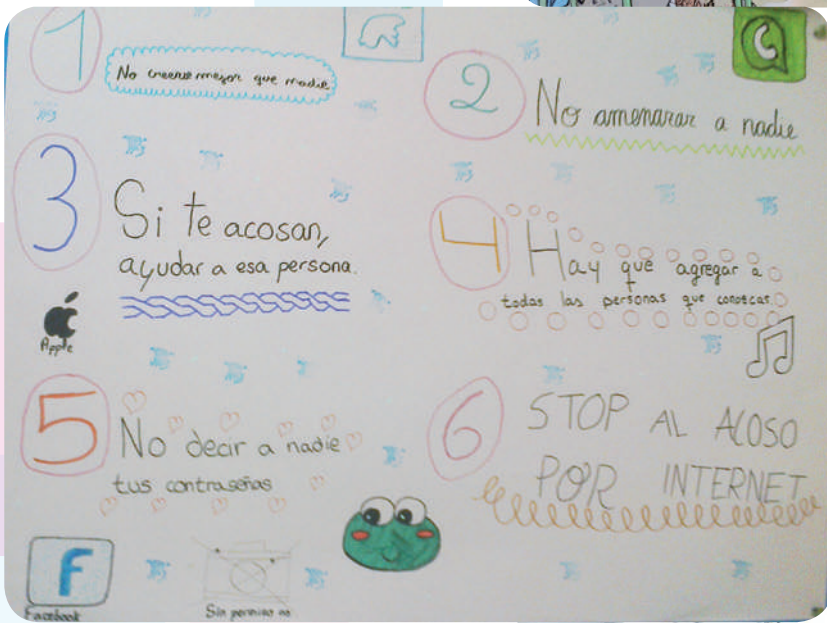 1
No creerse mejor que nadie
2
No amenazar a nadie
3
Si te acosan,
ayudar a esa persona.
Apple
4
Hay que agregar a
todas las personas que conozcas
5
No decir a nadie
tus contraseñas
6
STOP AL ACOSO
POR INTERNET
f
Facebook
Sin permiso no